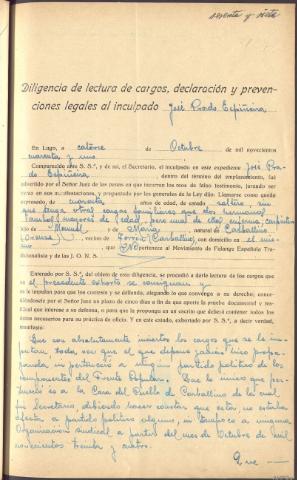 Diligencia de lectura de cargos, declaración y preven-
ciones legales al inculpado José Prado Espiñeira
En Lugo, a catorce de Octubre de mil novecientos
cuarenta y uno.
Comparecido ante S. S.ª, y de mí, el Secretario, el inculpado en este expediente José Pra-
do Espiñeira, dentro del término del emplazamiento, fué
advertido por el Señor Juez de las penas en que incurren los reos de falso testimonio, juzgado ser
veraz en sus manifestaciones, y preguntado por los generales de la Ley dijo: Llamarse como queda
expresado, de cuarenta años de edad, de estado soltero, sin
que tenga otras cargas familiares que dos hermanas
mayores de edad, pero una de ellas enferma, carpintero
hijo de Manuel y de María, natural de Carballino
(Orense), vecino de (Carballino), con domicilio en el mis-
mo que NO pertenece al Movimiento de Falange Española Tra-
dicionalista y de las J. O. N. S.
Enterado por S. S.ª, del objeto de esta diligencia, se procedió a darle lectura de los cargos que
en el precedente exhorto se consignan y
se le imputan para que los conteste y se defienda, alegando lo que convenga a su derecho, comu-
nicándosele por el Señor Juez un plazo de cinco días a fin de que aporte prueba documental y tes-
tifical que interese a su defensa, o para que la proponga en un escrito que deberá contener todos los
datos necesarios para su práctica de oficio. Y en este estado, exhortado por S. S.ª, a decir verdad,
manifiesta:
Que son absolutamente inciertos los cargos que se le im-
putan, toda vez que el que depone jamás hizo propa-
ganda, ni perteneció a ningún partido político de los
componentes del Frente Popular. Que lo único que per-
teneció es a la Casa del Pueblo de Carballino de la cual
fué Secretario, debiendo hacer constar que ésta no estaba
afecta a partido político alguno, ni tampoco a ninguna
Organización sindical a partir del mes de Octubre de mil
novecientos treinta y cuatro.
Que